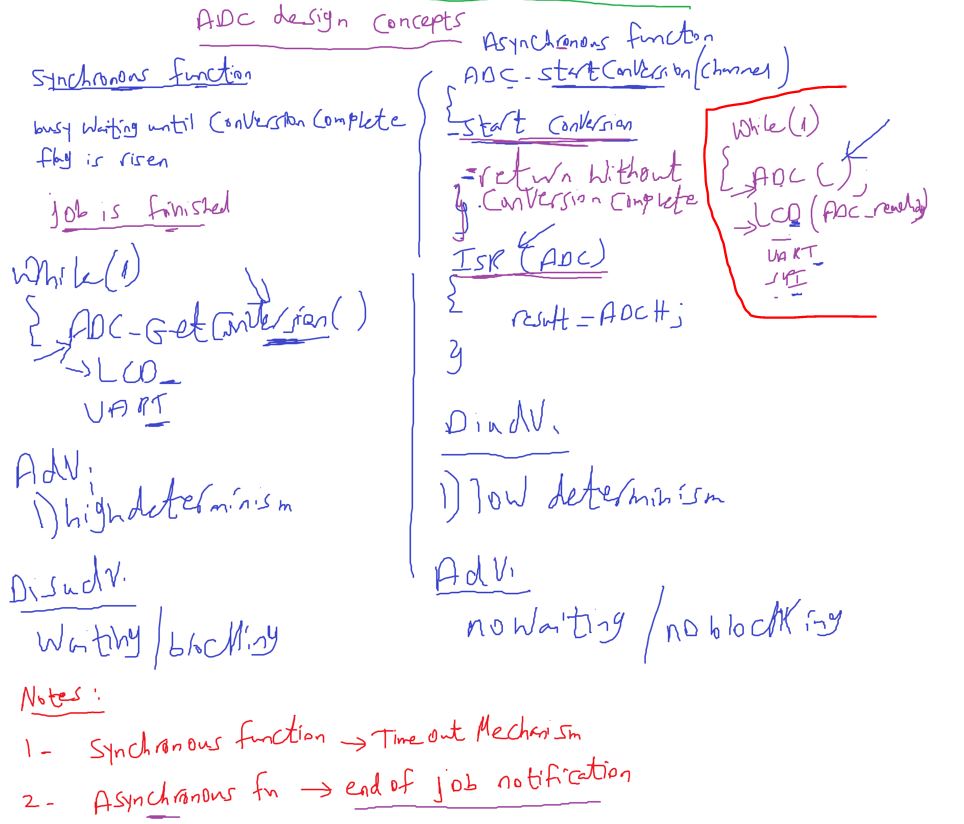 ADC design concepts
Synchronous function
busy waiting until Conversion Complete
flag is risen
job is finished
While(1)
{ ADC-GetConversion()
→LCD_
UART
Adv:
1) high determinism
Disadv.
Waiting / blocking
Asynchronous function
ADC-startConversion(Channel)
{
- Start Conversion
=return Without
. Conversion Complete
}
ISR (ADC)
{
result = ADCH;
}
1) low determinism
Adv.
no waiting / no blocking
While(1)
{ → ADC();
→ LCD (
UART
SPI
Notes:
1- Synchronous function → Timeout Mechanism
2- Asynchronous fn → end of job notification